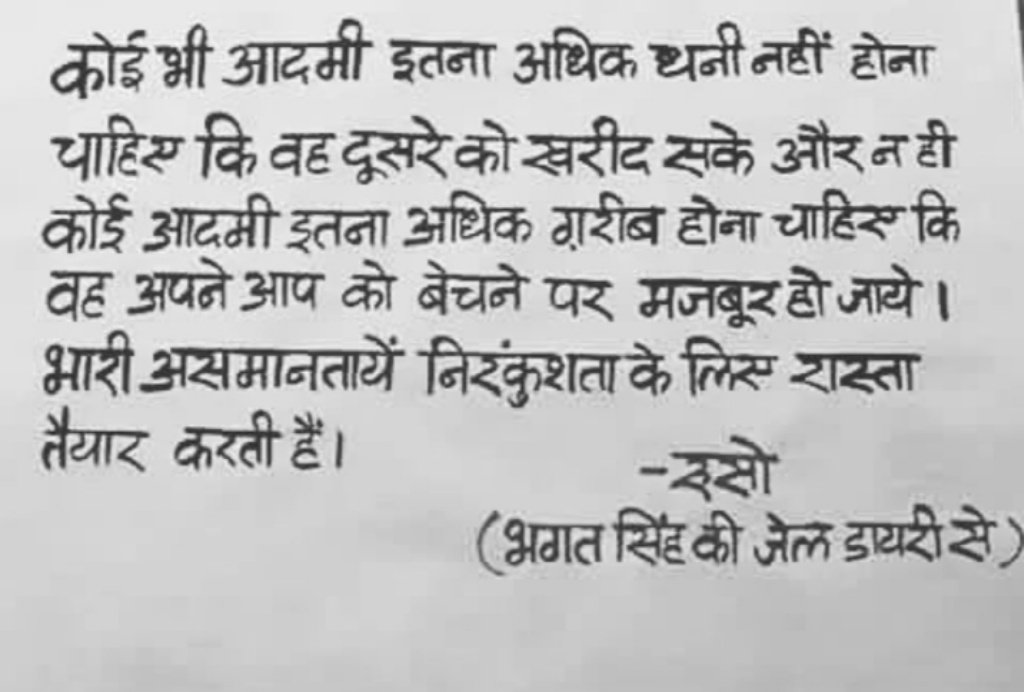 कोई भी आदमी इतना अधिक धनी नहीं होना
चाहिए कि वह दूसरे को खरीद सके और न ही
कोई आदमी इतना अधिक ग़रीब होना चाहिए कि
वह अपने आप को बेचने पर मजबूर हो जाये।
भारी असमानतायें निरंकुशता के लिए रास्ता
तैयार करती हैं।
-रुसो
(भगत सिंह की जेल डायरी से)